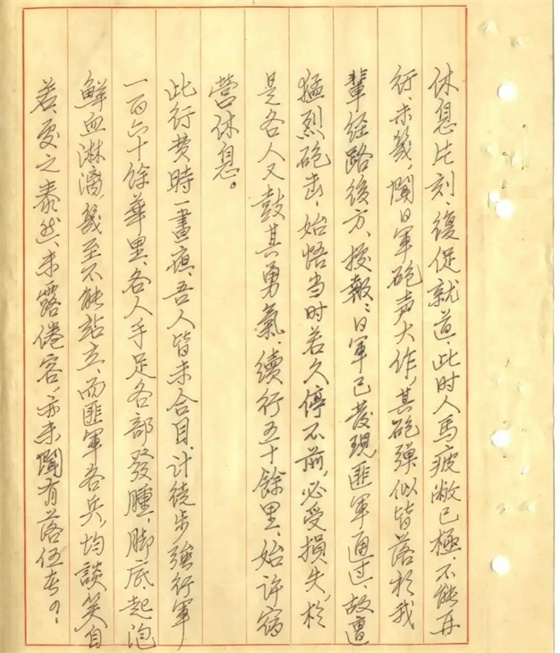 休息片刻、復促就道、此时人馬疲憊已極、不能再
行、未幾、聞日軍砲声大作、其砲彈似皆落於我
輩经路後方、按報：日軍已發現匪軍通过、故遭
猛烈砲击，始悟当时若久停不前，必受損失，於
是各人又鼓其勇氣、續行五十餘里、始许宿
营休息。
此行费時一晝夜、吾人皆未合目、计徒步強行軍
一百六十餘華里、各人手足各部發腫，脚底起泡
鮮血淋漓，幾至不能站立、而匪軍各兵，均談笑自
若、處之泰然、未露倦容，亦未聞有落伍者，